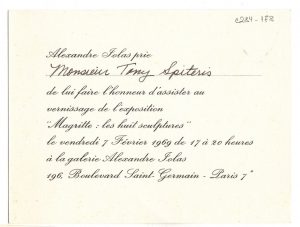 Alexandre Iolas prie
Monsieur Tony Spiteris
de lui faire l'honneur d'assister au
vernissage de l'exposition
"Magritte : les huit sculptures"
le vendredi 7 Février 1969 de 17 à 20 heures
à la galerie Alexandre Iolas
196, Boulevard Saint-Germain - Paris 7e